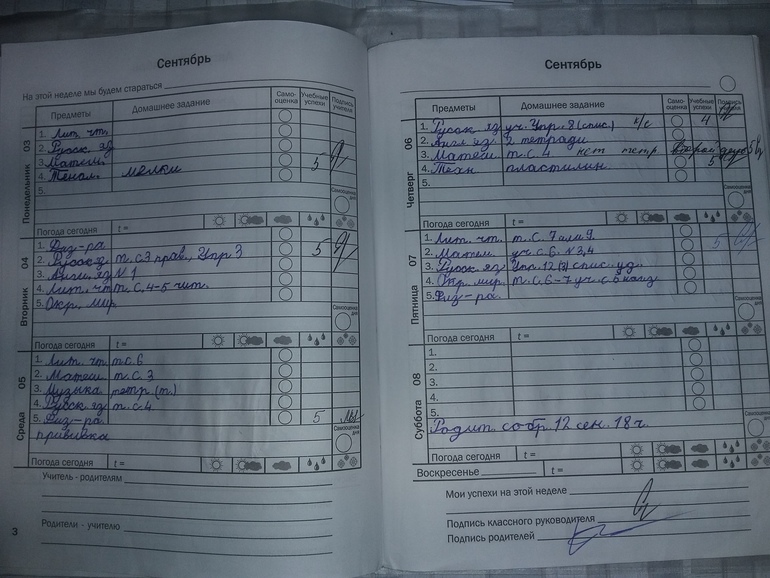 Сентябрь
На этой неделе мы будем стараться
Предметы Домашнее задание Само-оценка Учебные успехи Подпись учителя
Понедельник 03
1. Лит. чт.
2. Русск. яз.
3. Матем. 5
4. Технол. мелки
5.
Самооценка дня
Погода сегодня t =
Вторник 04
1. Физ-ра 5
2. Русск. яз т. с 3 прав., Упр 3
3. Англ. яз N 1
4. Лит. чт т. с. 4-5 чит.
5. Окр. мир
Самооценка дня
Погода сегодня t =
Среда 05
1. Лит. чт. т. с. 6
2. Матем. т. с. 3
3. Музыка тетр. (т.)
4. Русск. яз т. с. 4
5. Физ-ра. 5
прививка
Самооценка дня
Погода сегодня t =
Учитель - родителям
Родители - учителю
3
Сентябрь
Предметы Домашнее задание Само-оценка Учебные успехи Подпись учителя
Четверг 06
1. Русск. яз уч. Упр. 8 (спис.) 4
2. Англ. яз. 2 тетради
3. Матем. т. с. 4 нет тетр.
4. Техн пластилин 5
5.
Самооценка дня
Погода сегодня t =
Пятница 07
1. Лит. чт. т. с. 7 5
2. Матем. уч. с. 6. N 3,4
3. Русск. яз. Упр. 12 спис. уд.
4. Окр. мир. т. с. 6-7 уч. с 6
5. Физ-ра.
Самооценка дня
Погода сегодня t =
Суббота 08
1.
2.
3.
4.
5.
Родит. собр. 12 сен. 18 ч.
Самооценка дня
Воскресенье t =
Мои успехи на этой неделе
Подпись классного руководителя
Подпись родителей